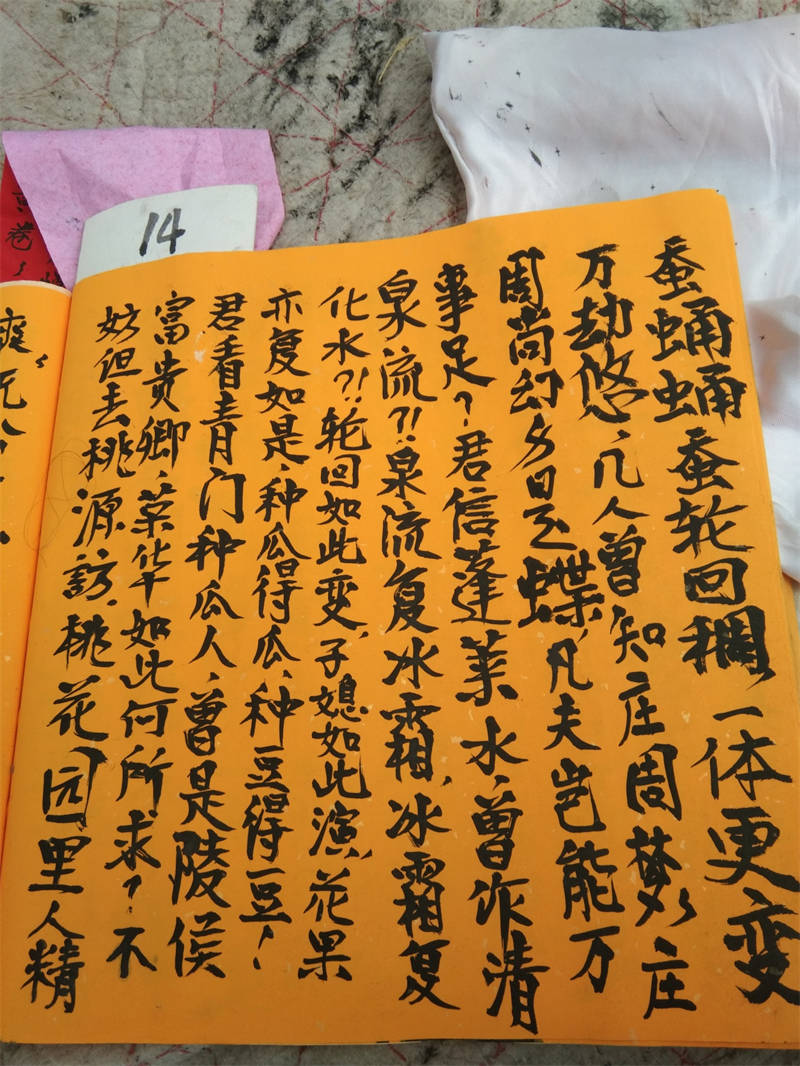 蚕蛹蛹蚕轮回稠,一体更变
万劫悠,几人曾知庄周梦,庄
周尚幻多是蝶,凡夫岂能万
事足?君信蓬莱水,曾作清
泉流?!泉流复冰霜,冰霜复
化水?!轮回如此变,子媳如此演,花果
亦复如是,种瓜得瓜,种豆得豆!
君看青门种瓜人,曾是陵侯
富贵卿,荣华如此何所求?不
妨但去桃源訪,桃花园里人精
14